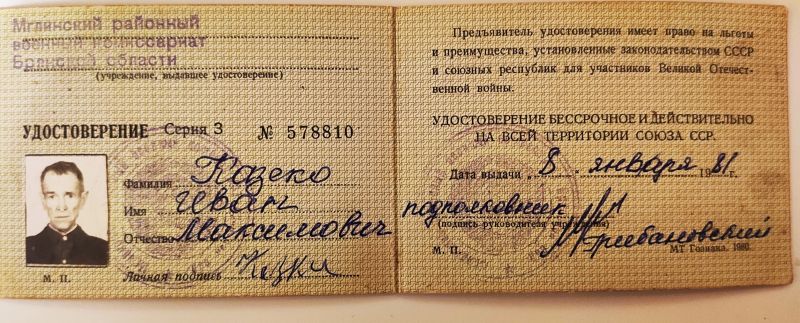 Мглинский районный
военный комиссариат
Брянской области
(учреждение, выдавшее удостоверение)
УДОСТОВЕРЕНИЕ Серия З № 578810
Фамилия Казеко
Имя Иван
Отчество Максимович
М. П. Личная подпись
Предъявитель удостоверения имеет право на льготы
и преимущества, установленные законодательством СССР
и союзных республик для участников Великой Отечест-
венной войны.
УДОСТОВЕРЕНИЕ БЕССРОЧНОЕ И ДЕЙСТВИТЕЛЬНО
НА ВСЕЙ ТЕРРИТОРИИ СОЮЗА ССР.
Дата выдачи 8 января 1981г.
подполковник Грибановский
(подпись руководителя учреждения)
М. П. МТ Гознака. 1980.